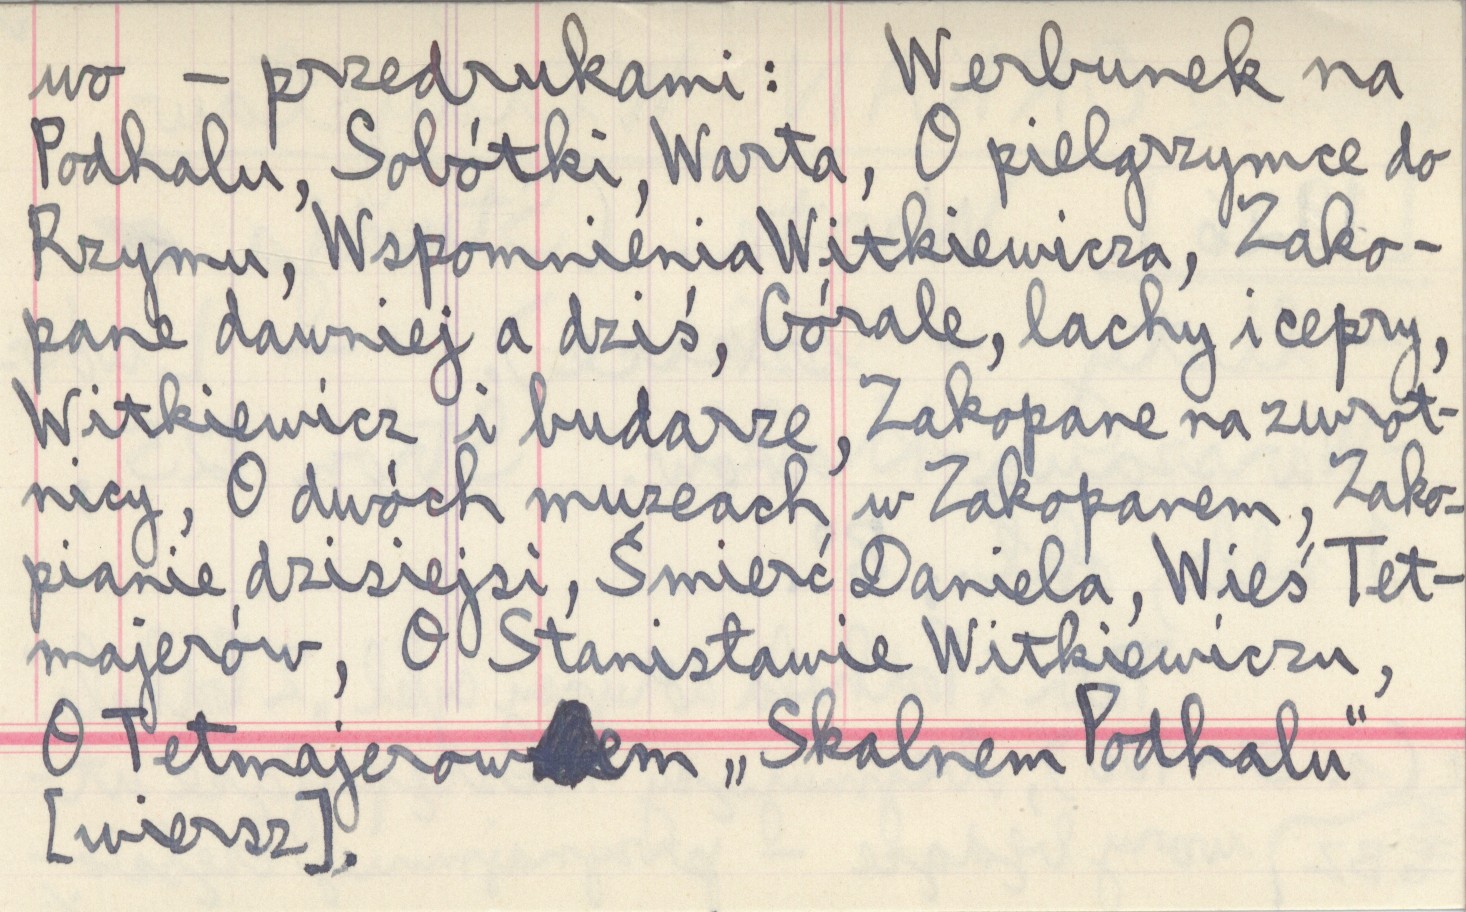 wo – przedrukami: Werbunek na
Podhalu, Sobótki, Warta, O pielgrzymce do
Rzymu, Wspomnienia Witkiewicza, Zako-
pane dawniej a dziś, Górale, lachy i cepry,
Witkiewicz i budarze, Zakopane na zwrot-
nicy, O dwóch muzeach w Zakopanem, Zako-
pianie dzisiejsi, Śmierć Daniela, Wieś Tet-
majerów, O Stanisławie Witkiewiczu,
O Tetmajerowem „Skalnem Podhalu"
[wiersz].